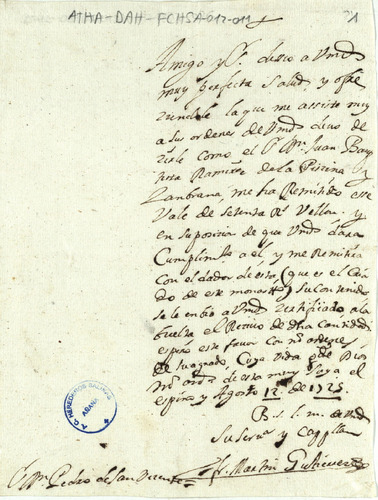 ATHA-DAH-FCHSA-017-011
Amigo y Sr. deseo a Vmd
muy perfecta salud, y ofre
ziendole la que me assiste muy
a sus ordenes de Vmd devo de
zirle como el Sr Dn Juan Bau
tista Ramirez de la Piscina y
Zanbrana, me ha Remitido este
Vale de setenta Rs Vellon, y
en suposicion de que Vmd dara
Cumplimto a el, y me Remitira
con el dador de esta (que es el Cria
do de este monastº) su contenido
se le enbio a Vmd Zertificado, a la
buelta el Recivo de dha cantidad
espero este favor con nos ordenes
de su agrado, Cuya vida gde Dios
ms as de esta muy suya el
espino y Agosto 12 de 1725
B. s. l. m. de Vmd
Su Servr y Cappllan
fr. Martin Gutierrez
Sr Dn Pedro de San Vicente
A.C. HEREDIMOS SALINAS
ARABA